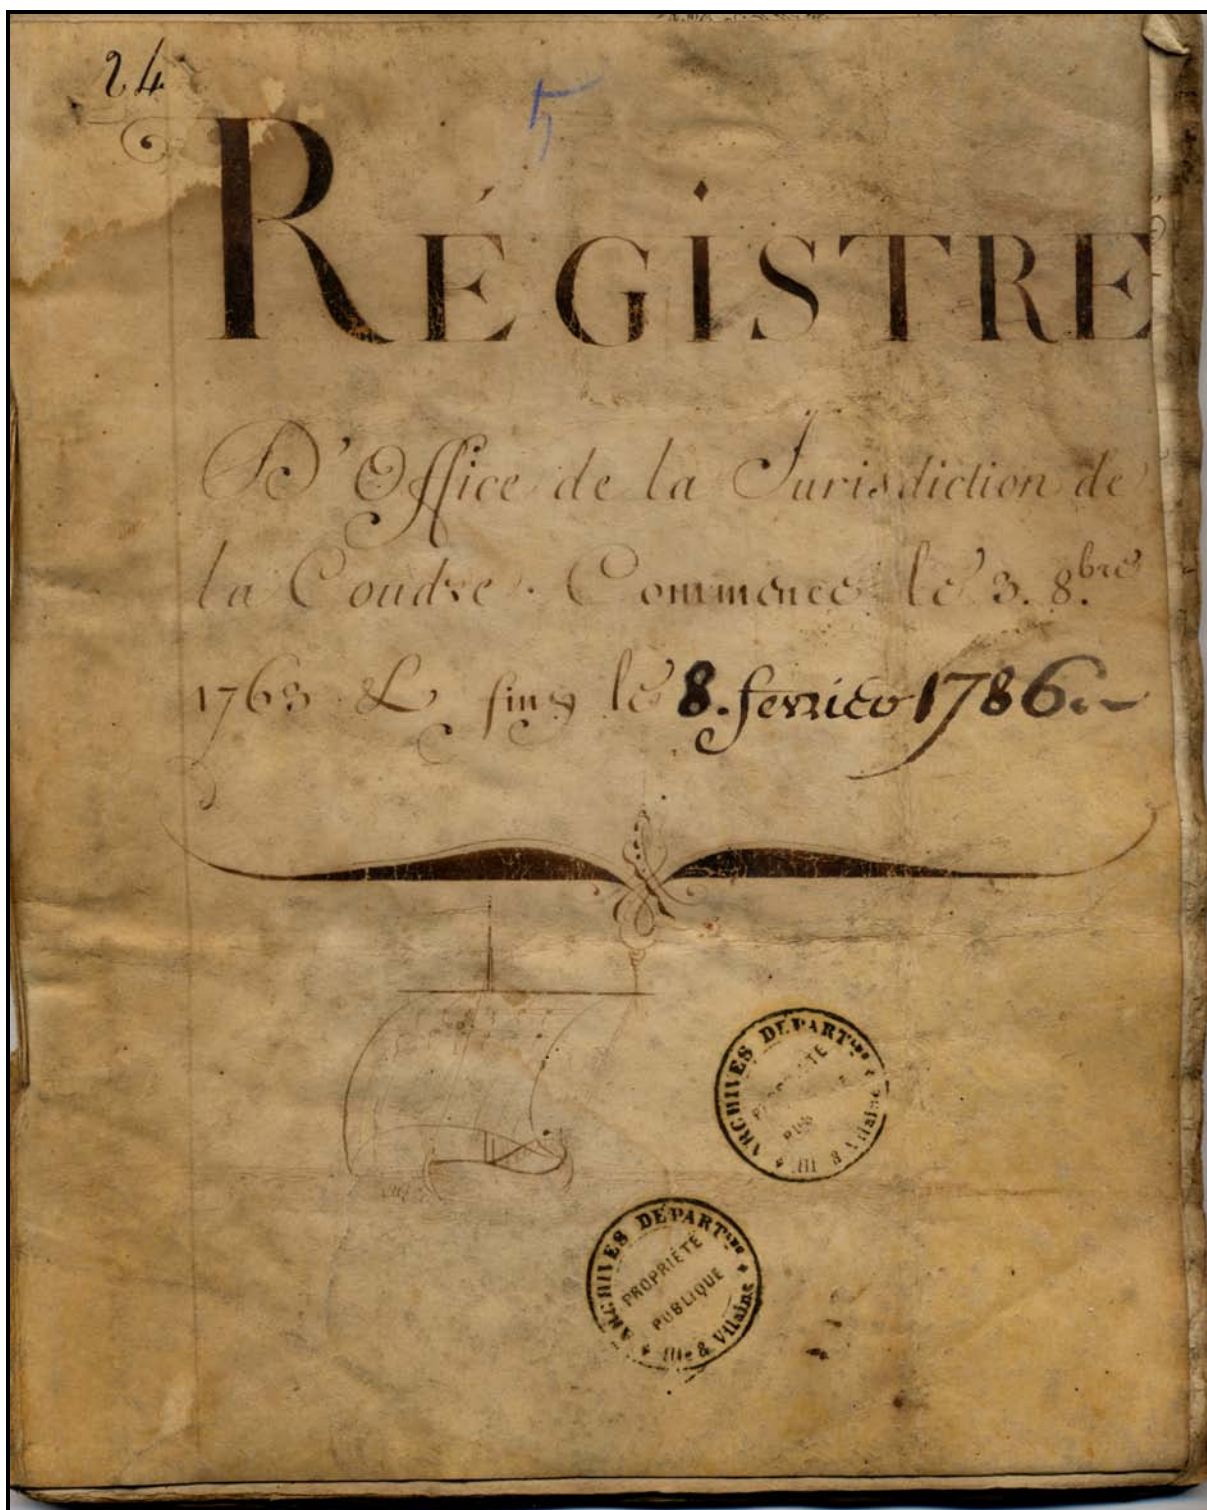 24
5
RÉGISTRE
D'Office de la Jurisdiction de
la Coudre. Commencé le 3. 8.bre
1763 & finy le 8. fevrier 1786.
ARCHIVES DÉPART.les
PROPRIÉTÉ
PUBLIQUE
Ille & Vilaine
ARCHIVES DÉPART.les
PROPRIÉTÉ
PUBLIQUE
Ille & Vilaine